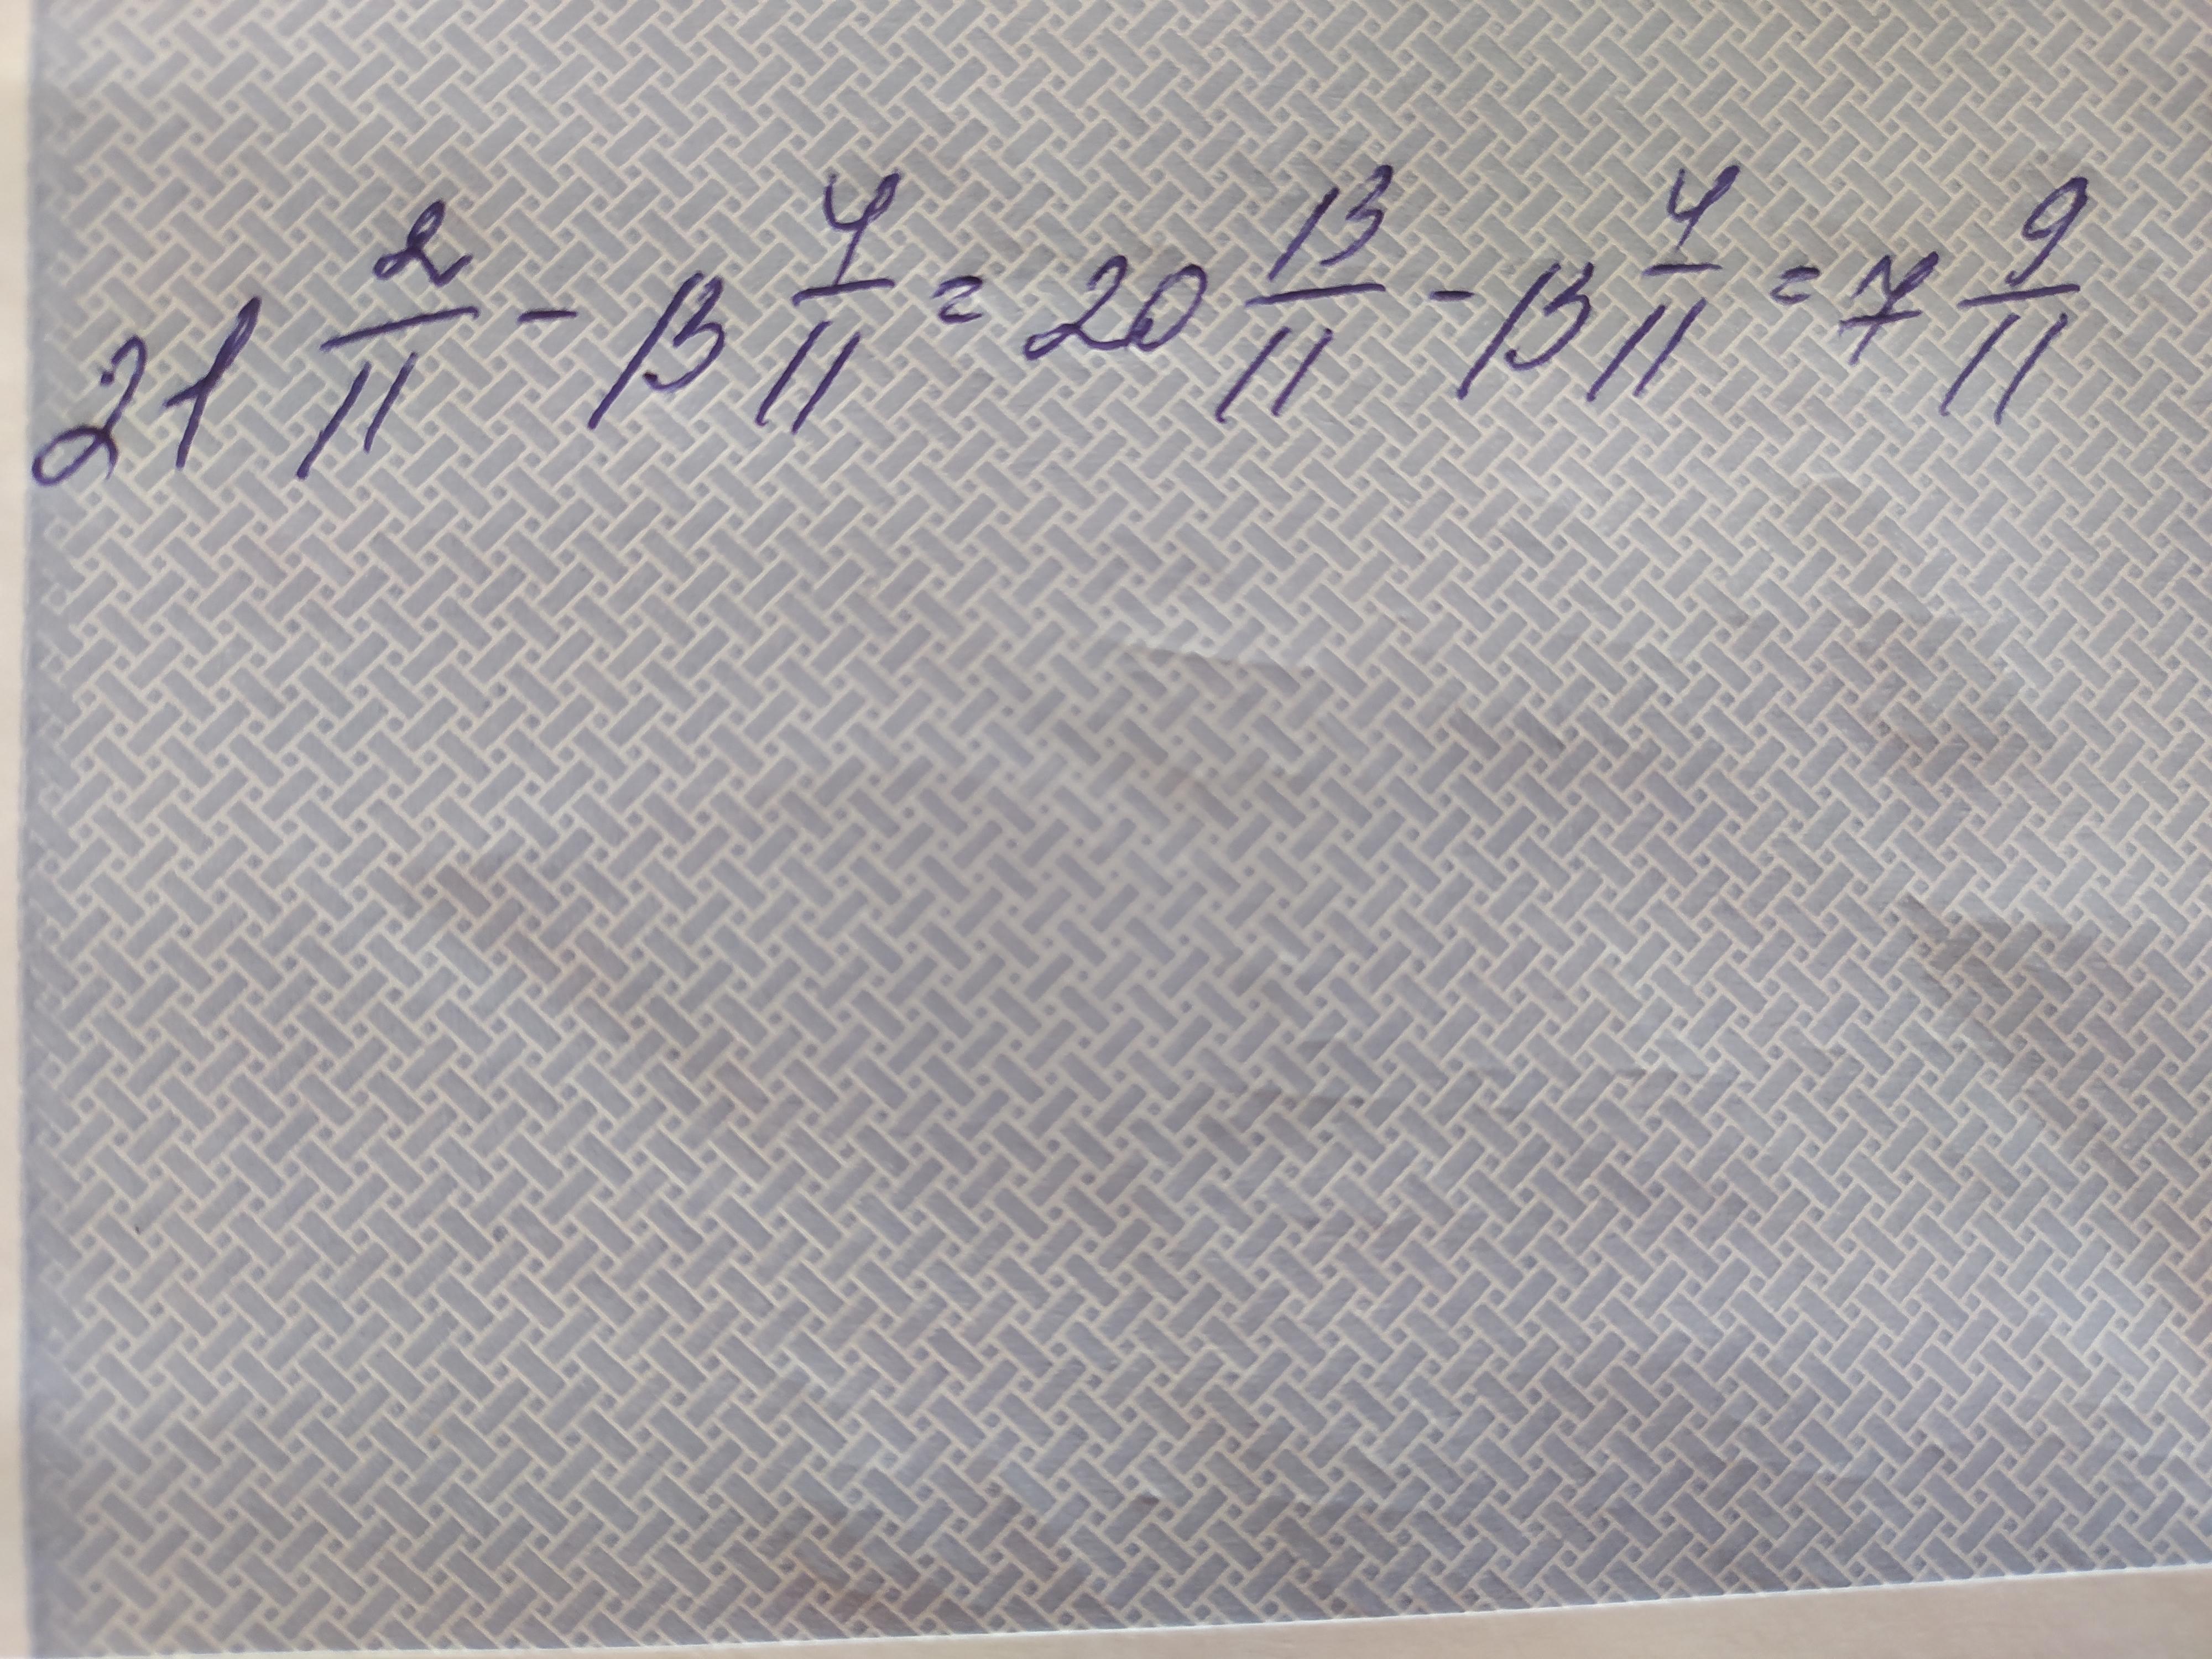 21 2/11 - 13 4/11 = 20 13/11 - 13 4/11 = 7 9/11